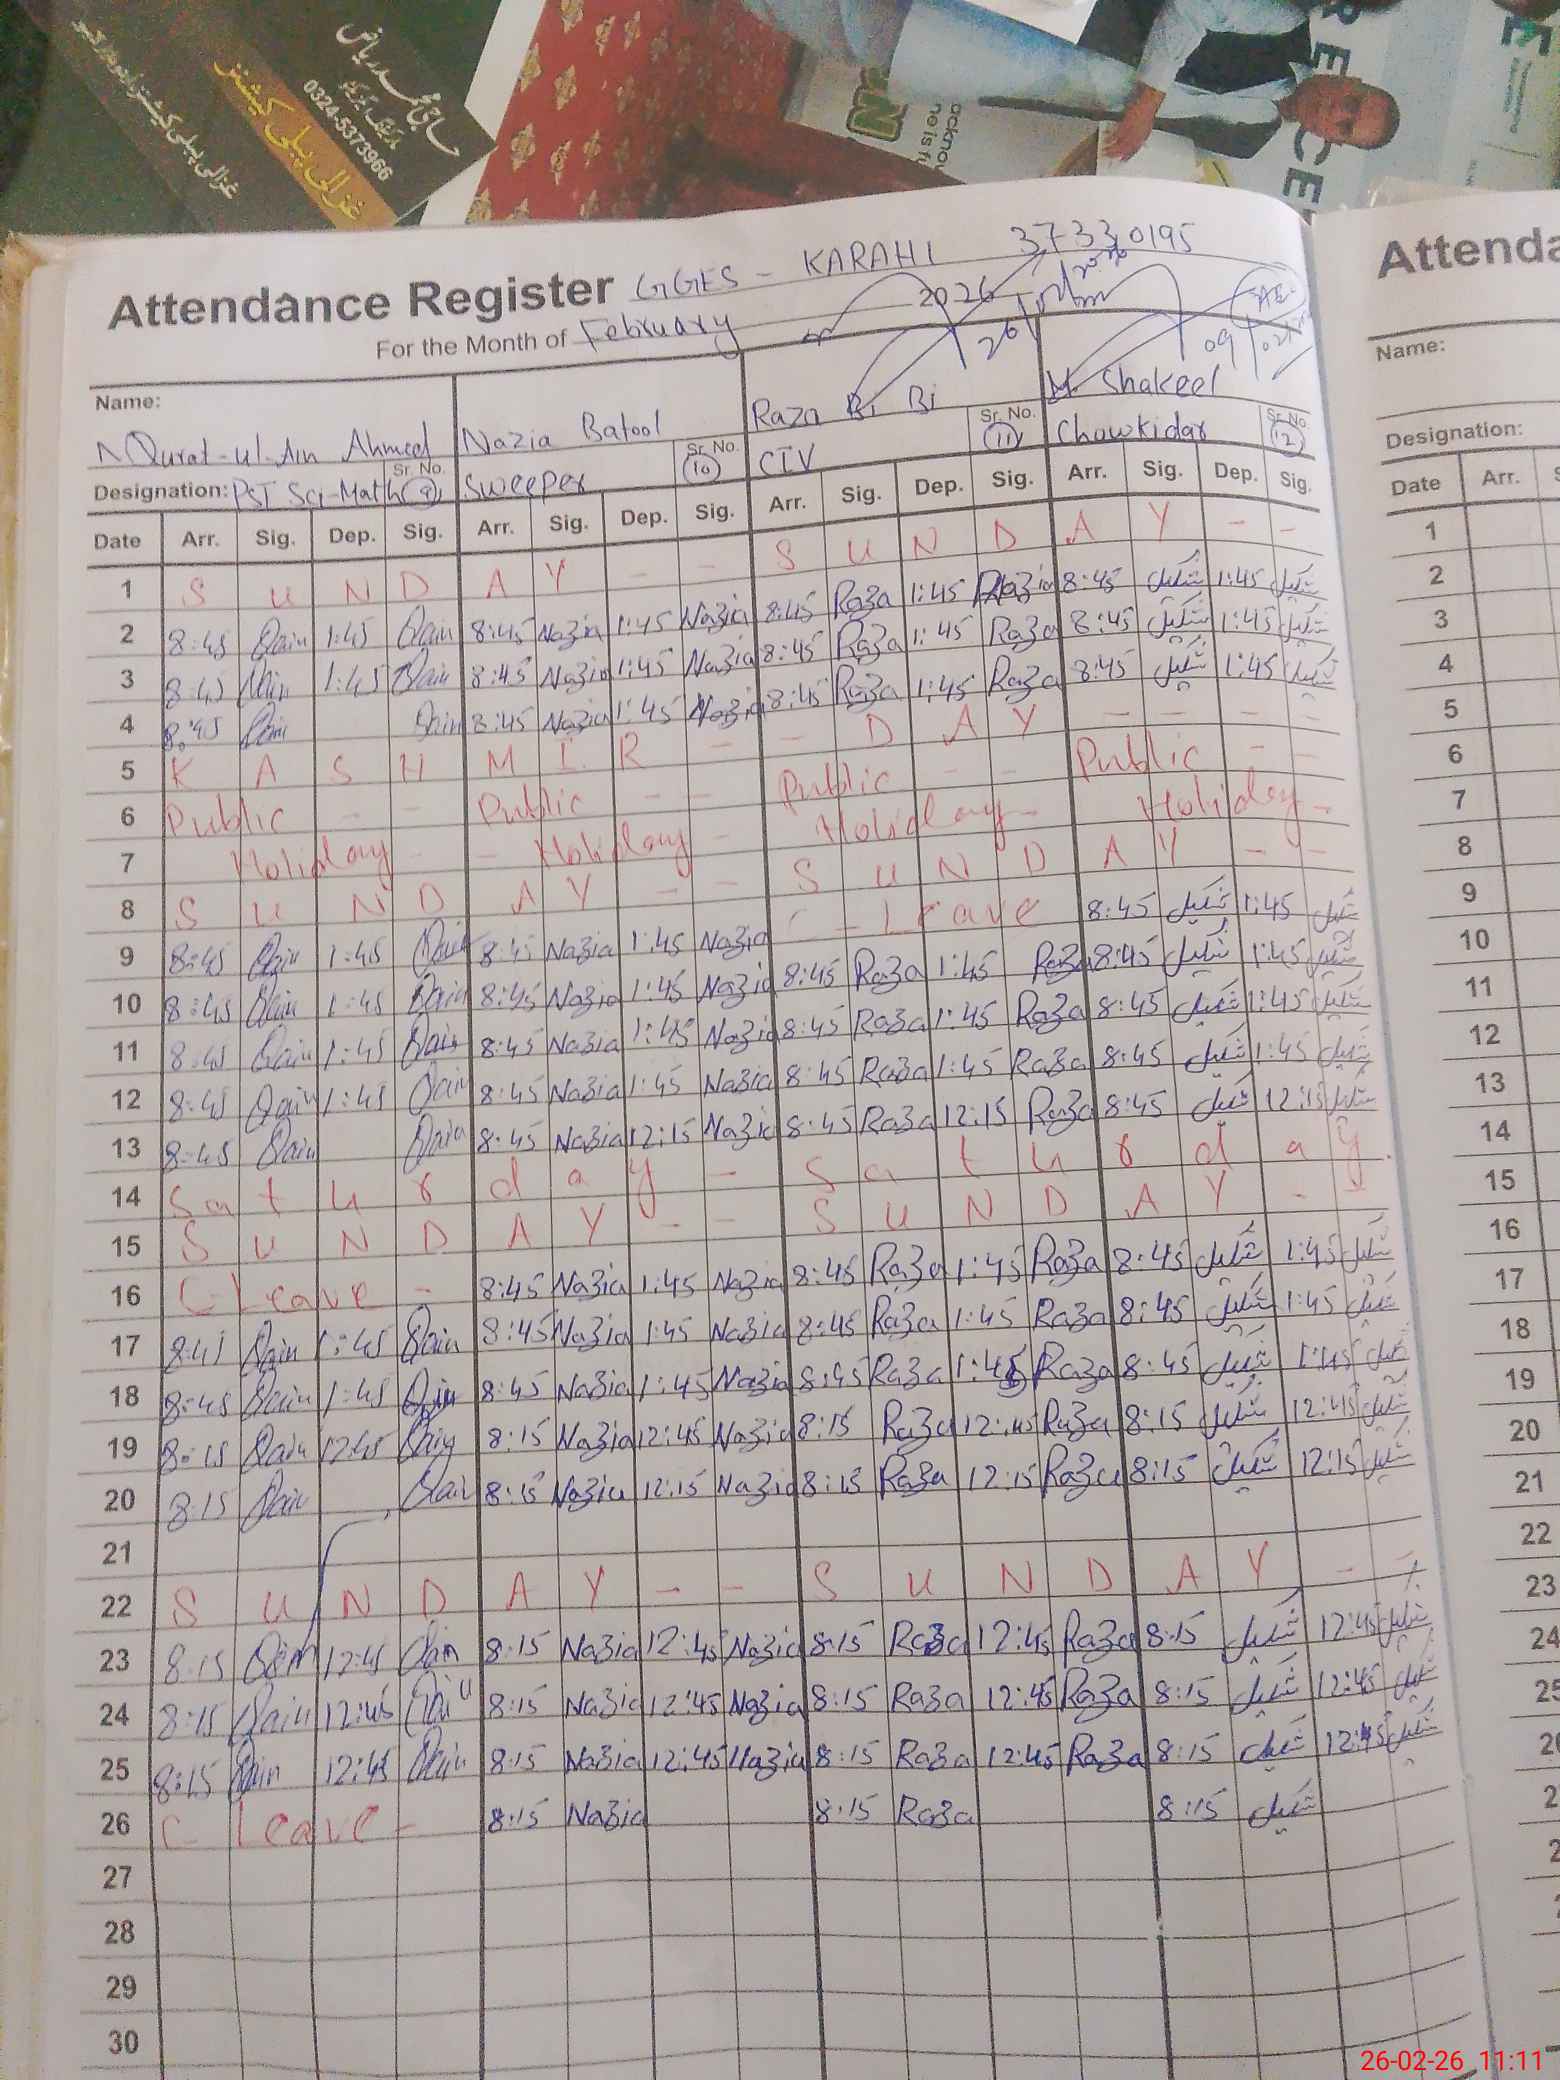 ساجی محمد ریاض
0324-5373966
غزالی پبلی کیشنز
RE
CE
N
acknow
ne is f
Attendance Register GGES - KARAHI 37330195
For the Month of February 2026
Attenda
Name:
N Qurat-ul-Ain Ahmed Nazia Batool Raza Bi Bi M. Shakeel
Designation: PST Sci-Math Sr. No. 9 Sweeper Sr. No. 10 CIV Sr. No. 11 Chowkidar Sr. No. 12
Date Arr. Sig. Dep. Sig. Arr. Sig. Dep. Sig. Arr. Sig. Dep. Sig. Arr. Sig. Dep. Sig.
1 S U N D A Y - - S U N D A Y - -
2 8:45 Qain 1:45 Qain 8:45 Nazia 1:45 Nazia 8:45 Raza 1:45 8:45 شکیل 1:45 شکیل
3 8:45 Qain 1:45 Qain 8:45 Nazia 1:45 Nazia 8:45 Raza 1:45 Raza 8:45 شکیل 1:45 شکیل
4 8:45 Qain Qain 8:45 Nazia 1:45 Nazia 8:45 Raza 1:45 Raza 8:45 شکیل 1:45 شکیل
5 K A S H M I R - - D A Y - - - -
6 Public - - Public - - Public - - Public - -
7 Holiday - - Holiday - Holiday - Holiday -
8 S U N D A Y - - S U N D A Y - -
9 8:45 Qain 1:45 Qain 8:45 Nazia 1:45 Nazia C - Leave 8:45 شکیل 1:45 شکیل
10 8:45 Qain 1:45 Qain 8:45 Nazia 1:45 Nazia 8:45 Raza 1:45 Raza 8:45 شکیل 1:45 شکیل
11 8:45 Qain 1:45 Qain 8:45 Nazia 1:45 Nazia 8:45 Raza 1:45 Raza 8:45 شکیل 1:45 شکیل
12 8:45 Qain 1:45 Qain 8:45 Nazia 1:45 Nazia 8:45 Raza 1:45 Raza 8:45 شکیل 1:45 شکیل
13 8:45 Qain Qain 8:45 Nazia 12:15 Nazia 8:45 Raza 12:15 Raza 8:45 شکیل 12:15 شکیل
14 S a t u r d a y - S a t u r d a y
15 S U N D A Y - - S U N D A Y - -
16 C - Leave - 8:45 Nazia 1:45 Nazia 8:45 Raza 1:45 Raza 8:45 شکیل 1:45 شکیل
17 8:45 Qain 1:45 Qain 8:45 Nazia 1:45 Nazia 8:45 Raza 1:45 Raza 8:45 شکیل 1:45 شکیل
18 8:45 Qain 1:45 Qain 8:45 Nazia 1:45 Nazia 8:45 Raza 1:45 Raza 8:45 شکیل 1:45 شکیل
19 8:15 Qain 12:45 Qain 8:15 Nazia 12:45 Nazia 8:15 Raza 12:45 Raza 8:15 شکیل 12:45 شکیل
20 8:15 Qain Qain 8:15 Nazia 12:15 Nazia 8:15 Raza 12:15 Raza 8:15 شکیل 12:15 شکیل
21
22 S U N D A Y - - S U N D A Y - -
23 8:15 Qain 12:45 Qain 8:15 Nazia 12:45 Nazia 8:15 Raza 12:45 Raza 8:15 شکیل 12:45 شکیل
24 8:15 Qain 12:45 Qain 8:15 Nazia 12:45 Nazia 8:15 Raza 12:45 Raza 8:15 شکیل 12:45 شکیل
25 8:15 Qain 12:45 Qain 8:15 Nazia 12:45 Nazia 8:15 Raza 12:45 Raza 8:15 شکیل 12:45 شکیل
26 C - Leave - 8:15 Nazia 8:15 Raza 8:15 شکیل
27
28
29
30
Name:
Designation:
Date Arr.
1
2
3
4
5
6
7
8
9
10
11
12
13
14
15
16
17
18
19
20
21
22
23
24
25
26-02-26 11:11